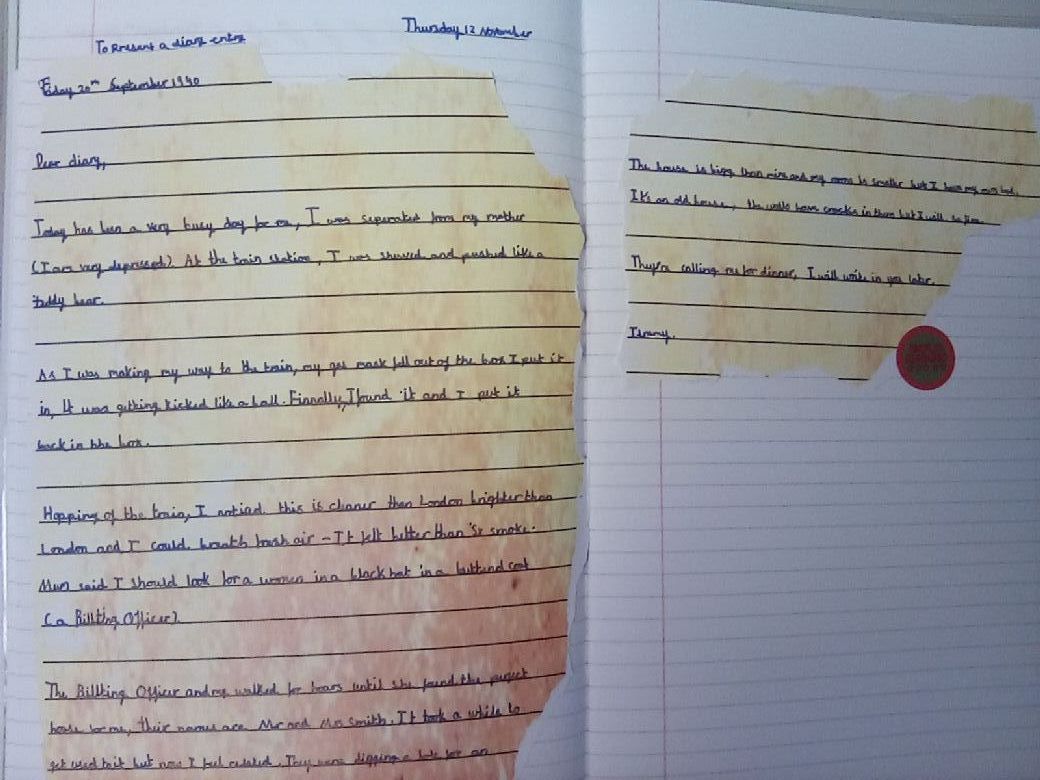 Thursday 12 November
To Present a diary entry
Friday 20th September 1940
Dear diary,
Today has been a very busy day for me, I was seperated from my mother
(I am very depressed). At the train station, I was shoved and pushed like a
teddy bear.
As I was making my way to the train, my gas mask fell out of the box I put it
in, It was getting kicked like a ball. Finnally, I found it and I put it
back in the box.
Hopping of the train, I this is cleaner than London brighter than
London and I could breath fresh air - It felt better than smoke.
Mum said I should look for a women in a black hat in a coat
(a Officer)
The Officer and me walked for hours until she found the
house for me, their names are Mr and Mrs Smith. It took a while to
get used to it but now I feel They were digging a hole for an
The house is than mine and my room is smaller but I have my own bed.
It's an old house, the walls have cracks in them but I will
They're calling me for dinner, I will write in you later.